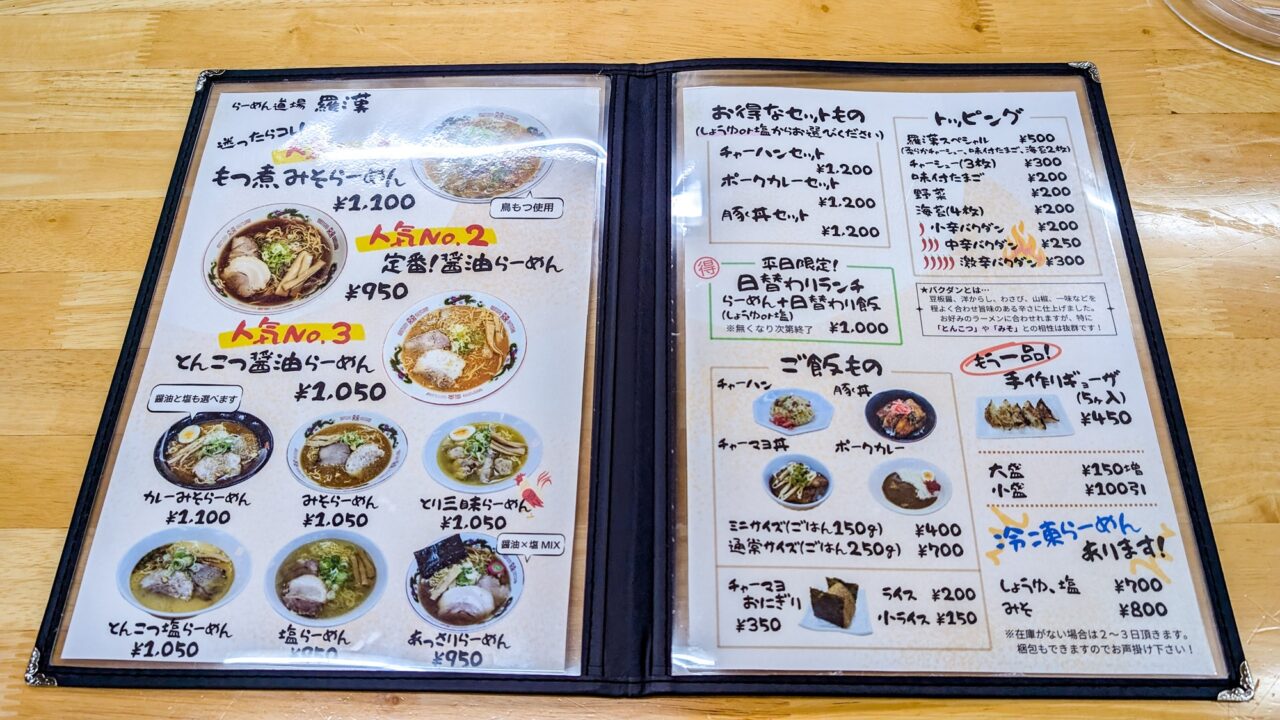 らーめん道場 羅漢
迷ったらコレ!
もつ煮みそらーめん
¥1,100
鳥もつ使用
人気No.2
定番!醤油らーめん
¥950
人気No.3
とんこつ醤油らーめん
¥1,050
醤油と塩も選べます
カレーみそらーめん
¥1,100
みそらーめん
¥1,050
とり三昧らーめん
¥1,050
醤油×塩 MIX
とんこつ塩らーめん
¥1,050
塩らーめん
¥950
あっさりらーめん
¥950
お得なセットもの
(しょうゆor塩からお選びください)
チャーハンセット
¥1,200
ポークカレーセット
¥1,200
豚丼セット
¥1,200
得
平日限定!
日替わりランチ
らーめん+日替わり飯
(しょうゆor塩)
※無くなり次第終了 ¥1,000
ご飯もの
チャーハン
豚丼
チャーマヨ丼
ポークカレー
ミニサイズ(ごはん150g) ¥400
通常サイズ(ごはん250g) ¥700
チャーマヨ
おにぎり
¥350
ライス ¥200
小ライス ¥150
トッピング
羅漢スペシャル ¥500
(柔らかチャーシュー、味付たまご、海苔2枚)
チャーシュー(3枚) ¥300
味付たまご ¥200
野菜 ¥200
海苔(4枚) ¥200
小辛バクダン ¥200
中辛バクダン ¥250
激辛バクダン ¥300
★バクダンとは…
豆板醤、洋からし、わさび、山椒、一味などを
程よく合わせ旨味のある辛さに仕上げました。
お好みのラーメンに合わせれますが、特に
「とんこつ」や「みそ」との相性は抜群です!
もう一品!
手作りギョーザ
(5ヶ入)
¥450
大盛 ¥150増
小盛 ¥100引
冷凍らーめん
あります!
しょうゆ、塩 ¥700
みそ ¥800
※在庫がない場合は2〜3日頂きます。
梱包もできますのでお声掛け下さい!